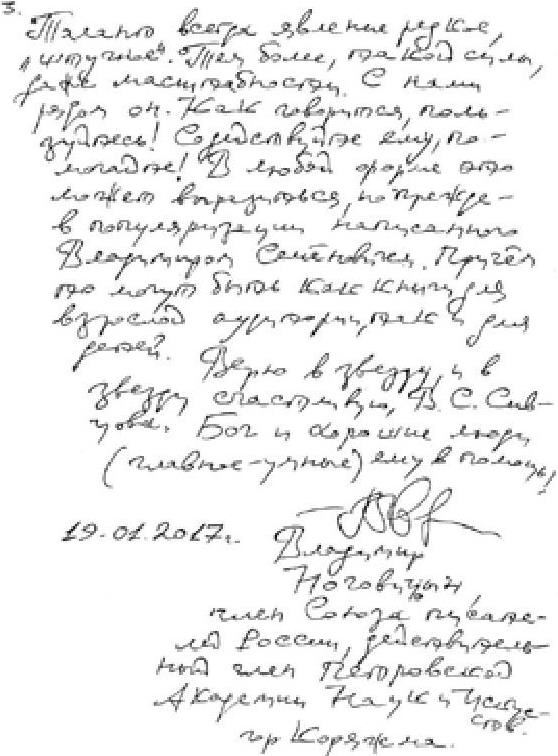 3.
Талант всегда явление редкое,
„штучное". Тем более, такой силы,
даже масштабности. С нами
рядом он. Как говорится, поль-
зуйтесь! Содействуйте ему, по-
могайте! В любой форме это
может выразиться, но прежде-
в популяризации написанного
Владимиром Семёновичем. Причём
то могут быть как книги для
взрослой аудитории, так и для
детей. Верю в звезду, и в
звезду счастливую, В. С. Сив-
цова. Бог и хорошие люди
(главное - умные) ему в помощь!
19.01.2017г.
Владимир
Ноговицын,
член Союза писате-
лей России, действитель-
ный член Петровской
Академии Наук и Искус-
ств.
гор Коряжма.